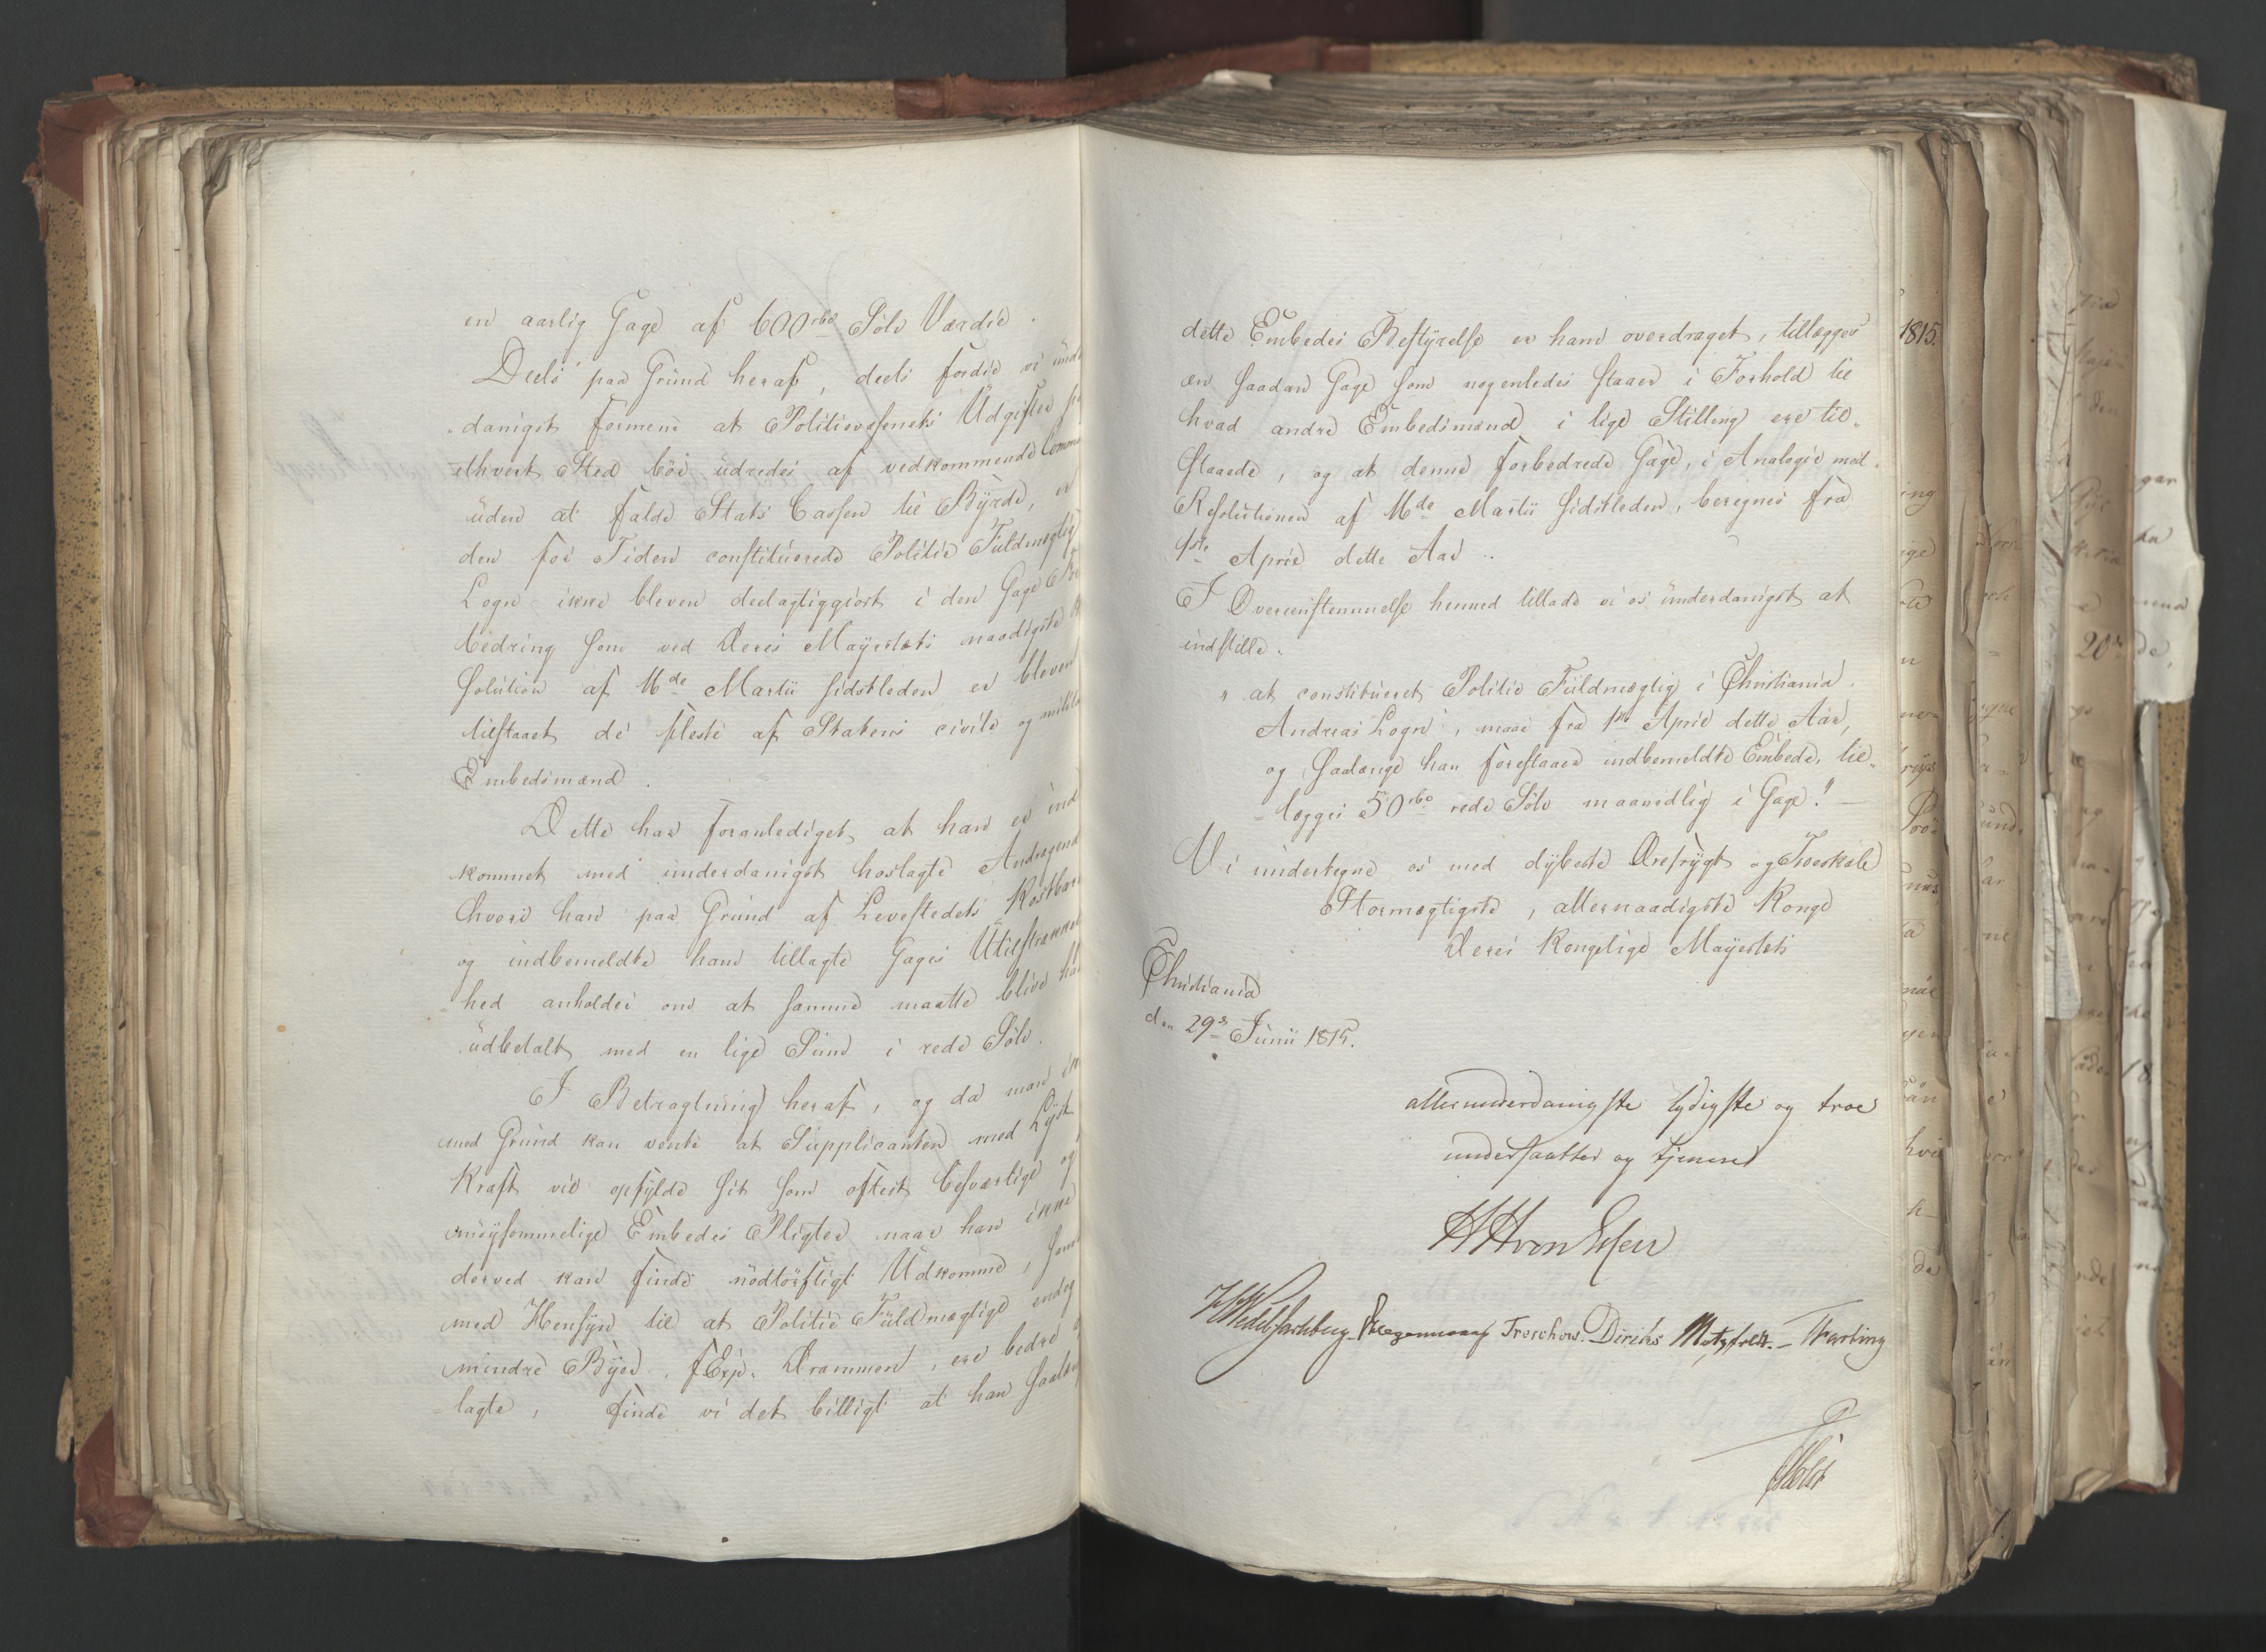 en aarlig Gage af 600 rbd Sølv Værdie.
Deels paa Grund heraf, deels fordie vi und
danigst formene at Politievæsenets Udgifter
ethvert Sted bör udredes af vedkommende Comm
uden at falde Stats Cassen til Byrde, er
den for Tiden constituerede Politie Fuldmægtig
Logn ikke bleven deelagtiggiort i den Gage
bedring som ved Deres Mayestæts naadigste
solution af 16de Martii sidstleden er bleven
tilstaaet de fleste af Statens civile og milit
Embedsmænd.
Dette har foranlediget at han er ind
kommet med underdanigst hoslagte Andragend
hvori han paa Grund af Levestedets Kostbar
og indbemeldte ham tillagte Gages Utilstrækkel
hed anholder om at samme maatte blive
udbetalt med en lige Sum i rede Sølv.
I Betragtning heraf, og da man
med Grund kan vente at Supplicanten med Lyst
Kraft vil opfylde sit som oftest besværlige og
möysommelige Embedes Pligter naar han ikke
derved kan finde nödtörftigt Udkomme, samt
med Hensyn til at Politie Fuldmægtige endog
mindre Byer, f Exp. Drammen, ere bedre
lagte, finde vi det billigt at han saalæn
dette Embedes Bestyrelse er ham overdraget, tillægges
en saadan Gage som nogenledes staaer i Forhold til
hvad andre Embedsmænd i lige Stilling ere til-
staaede, og at denne forbedrede Gage, i Analogie med
Resolutionen af 16de Martii sidstleden, beregnes fra
1ste April dette Aar.
I Overeenstemmelse hermed tillade vi os underdanigst at
indstille:
"at constitueret Politie Fuldmægtig i Christiania
Andreas Logn, maae fra 1ste April dette Aar,
og saalænge han forestaaer indbemeldte Embede, til-
lægges 50 rbd rede Sølv maanedlig i Gage." —
Vi undertegne os med dybeste Ærefrygt og Troeskab
Stormægtigste, allernaadigste Konge
Deres Kongelige Mayestæts
Christiania
den 29de Junii 1815.
allerunderdanigste lydigste og troe
undersaatter og tjenere
HHvonEssen
HWedelJarlsberg. Treschow. Diriks Motzfeldt. –
Holst
1815.